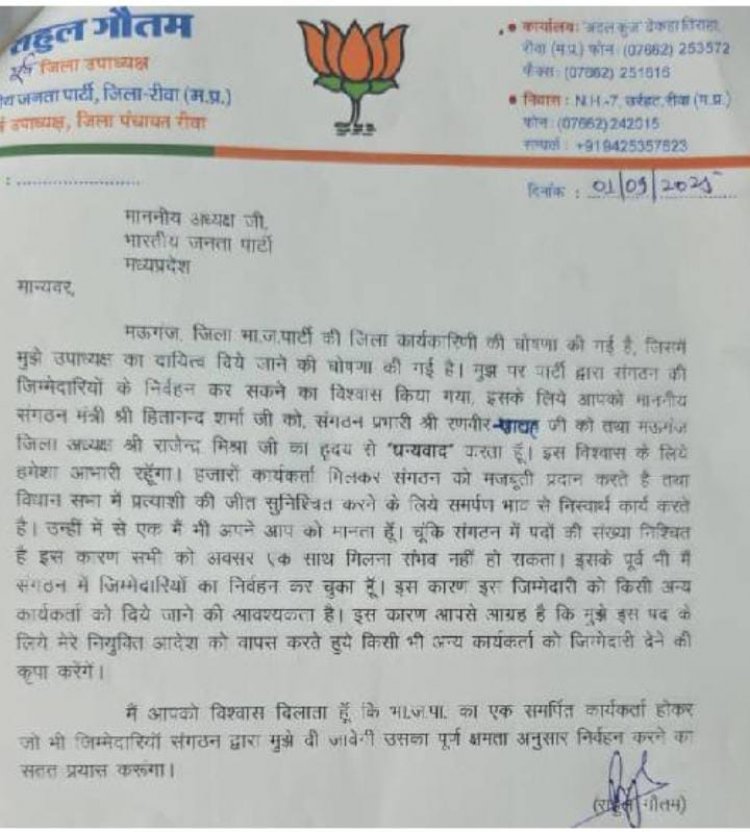 राहुल गौतम
पूर्व जिला उपाध्यक्ष
जनता पार्टी, जिला-रीवा (म.प्र.)
उपाध्यक्ष, जिला पंचायत रीवा
कार्यालय: 'अटल कुंज' ढेकहा तिराहा,
रीवा (म.प्र.) फोन: (07662) 253572
फैक्स: (07662) 251616
निवास : N.H-7, उर्रहट, रीवा (म.प्र.)
फोन: (07662) 242015
सम्पर्क : +919425357623
दिनांक : 01/09/2025
माननीय अध्यक्ष जी,
भारतीय जनता पार्टी
मध्यप्रदेश
मान्यवर,
मऊगंज, जिला भा.ज.पार्टी की जिला कार्यकारिणी की घोषणा की गई है, जिसमें
मुझे उपाध्यक्ष का दायित्व दिये जाने की घोषणा की गई है। मुझ पर पार्टी द्वारा संगठन की
जिम्मेदारियों के निर्वहन कर सकने का विश्वास किया गया, इसके लिये आपको माननीय
संगठन मंत्री श्री हितानन्द शर्मा जी को, संगठन प्रभारी श्री रणवीर जी को तथा मऊगंज
जिला अध्यक्ष श्री राजेन्द्र मिश्रा जी का हृदय से "धन्यवाद" करता हूँ। इस विश्वास के लिये
हमेशा आभारी रहूँगा। हजारों कार्यकर्ता मिलकर संगठन को मजबूती प्रदान करते है तथा
विधान सभा में प्रत्याशी की जीत सुनिश्चित करने के लिये समर्पण भाव से निस्वार्थ कार्य करते
है। उन्हीं में से एक मैं भी अपने आप को मानता हूँ। चूंकि संगठन में पदों की संख्या निश्चित
है इस कारण सभी को अवसर एक साथ मिलना संभव नहीं हो सकता। इसके पूर्व भी मैं
संगठन में जिम्मेदारियों का निर्वहन कर चुका हूँ। इस कारण इस जिम्मेदारी को किसी अन्य
कार्यकर्ता को दिये जाने की आवश्यकता है। इस कारण आपसे आग्रह है कि मुझे इस पद के
लिये मेरे नियुक्ति आदेश को वापस करते हुये किसी भी अन्य कार्यकर्ता को जिम्मेदारी देने की
कृपा करेंगें।
मैं आपको विश्वास दिलाता हूँ कि भा.ज.पा. का एक समर्पित कार्यकर्ता होकर
जो भी जिम्मेदारियॉ संगठन द्वारा मुझे दी जावेगी उसका पूर्ण क्षमता अनुसार निर्वहन करने का
सतत प्रयास करूंगा।
(राहुल गौतम)